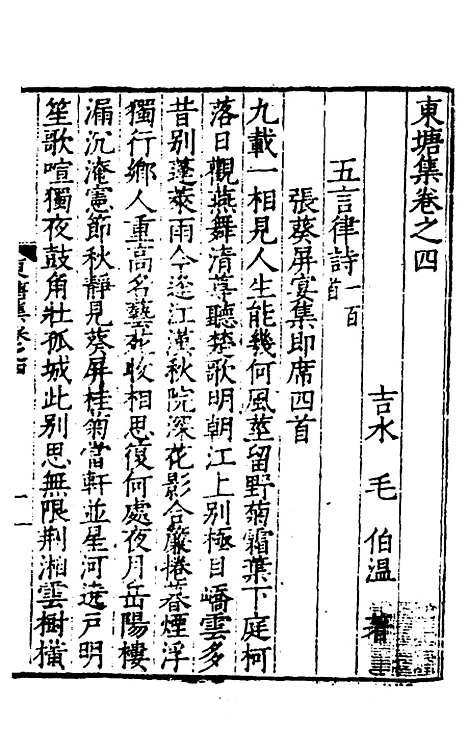 東塘集卷之四
吉水 毛 伯溫 著
五言律詩一百首
張葵屏宴集即席四首
九載一相見人生能幾何風莖留野菊霜葉下庭柯
落日觀燕舞清尊聽楚歌明朝江上别極目嶠雲多
昔别蓬萊雨今逢江漢秋院深花影合簾捲暮煙浮
獨行鄉人重高名藝苑收相思復何處夜月岳陽樓
漏沉淹憲節秋靜見葵屏桂菊當軒並星河遶戸明
笙歌喧獨夜鼓角壯孤城此别思無限荆湘雲樹橫
東塘集卷之四
一